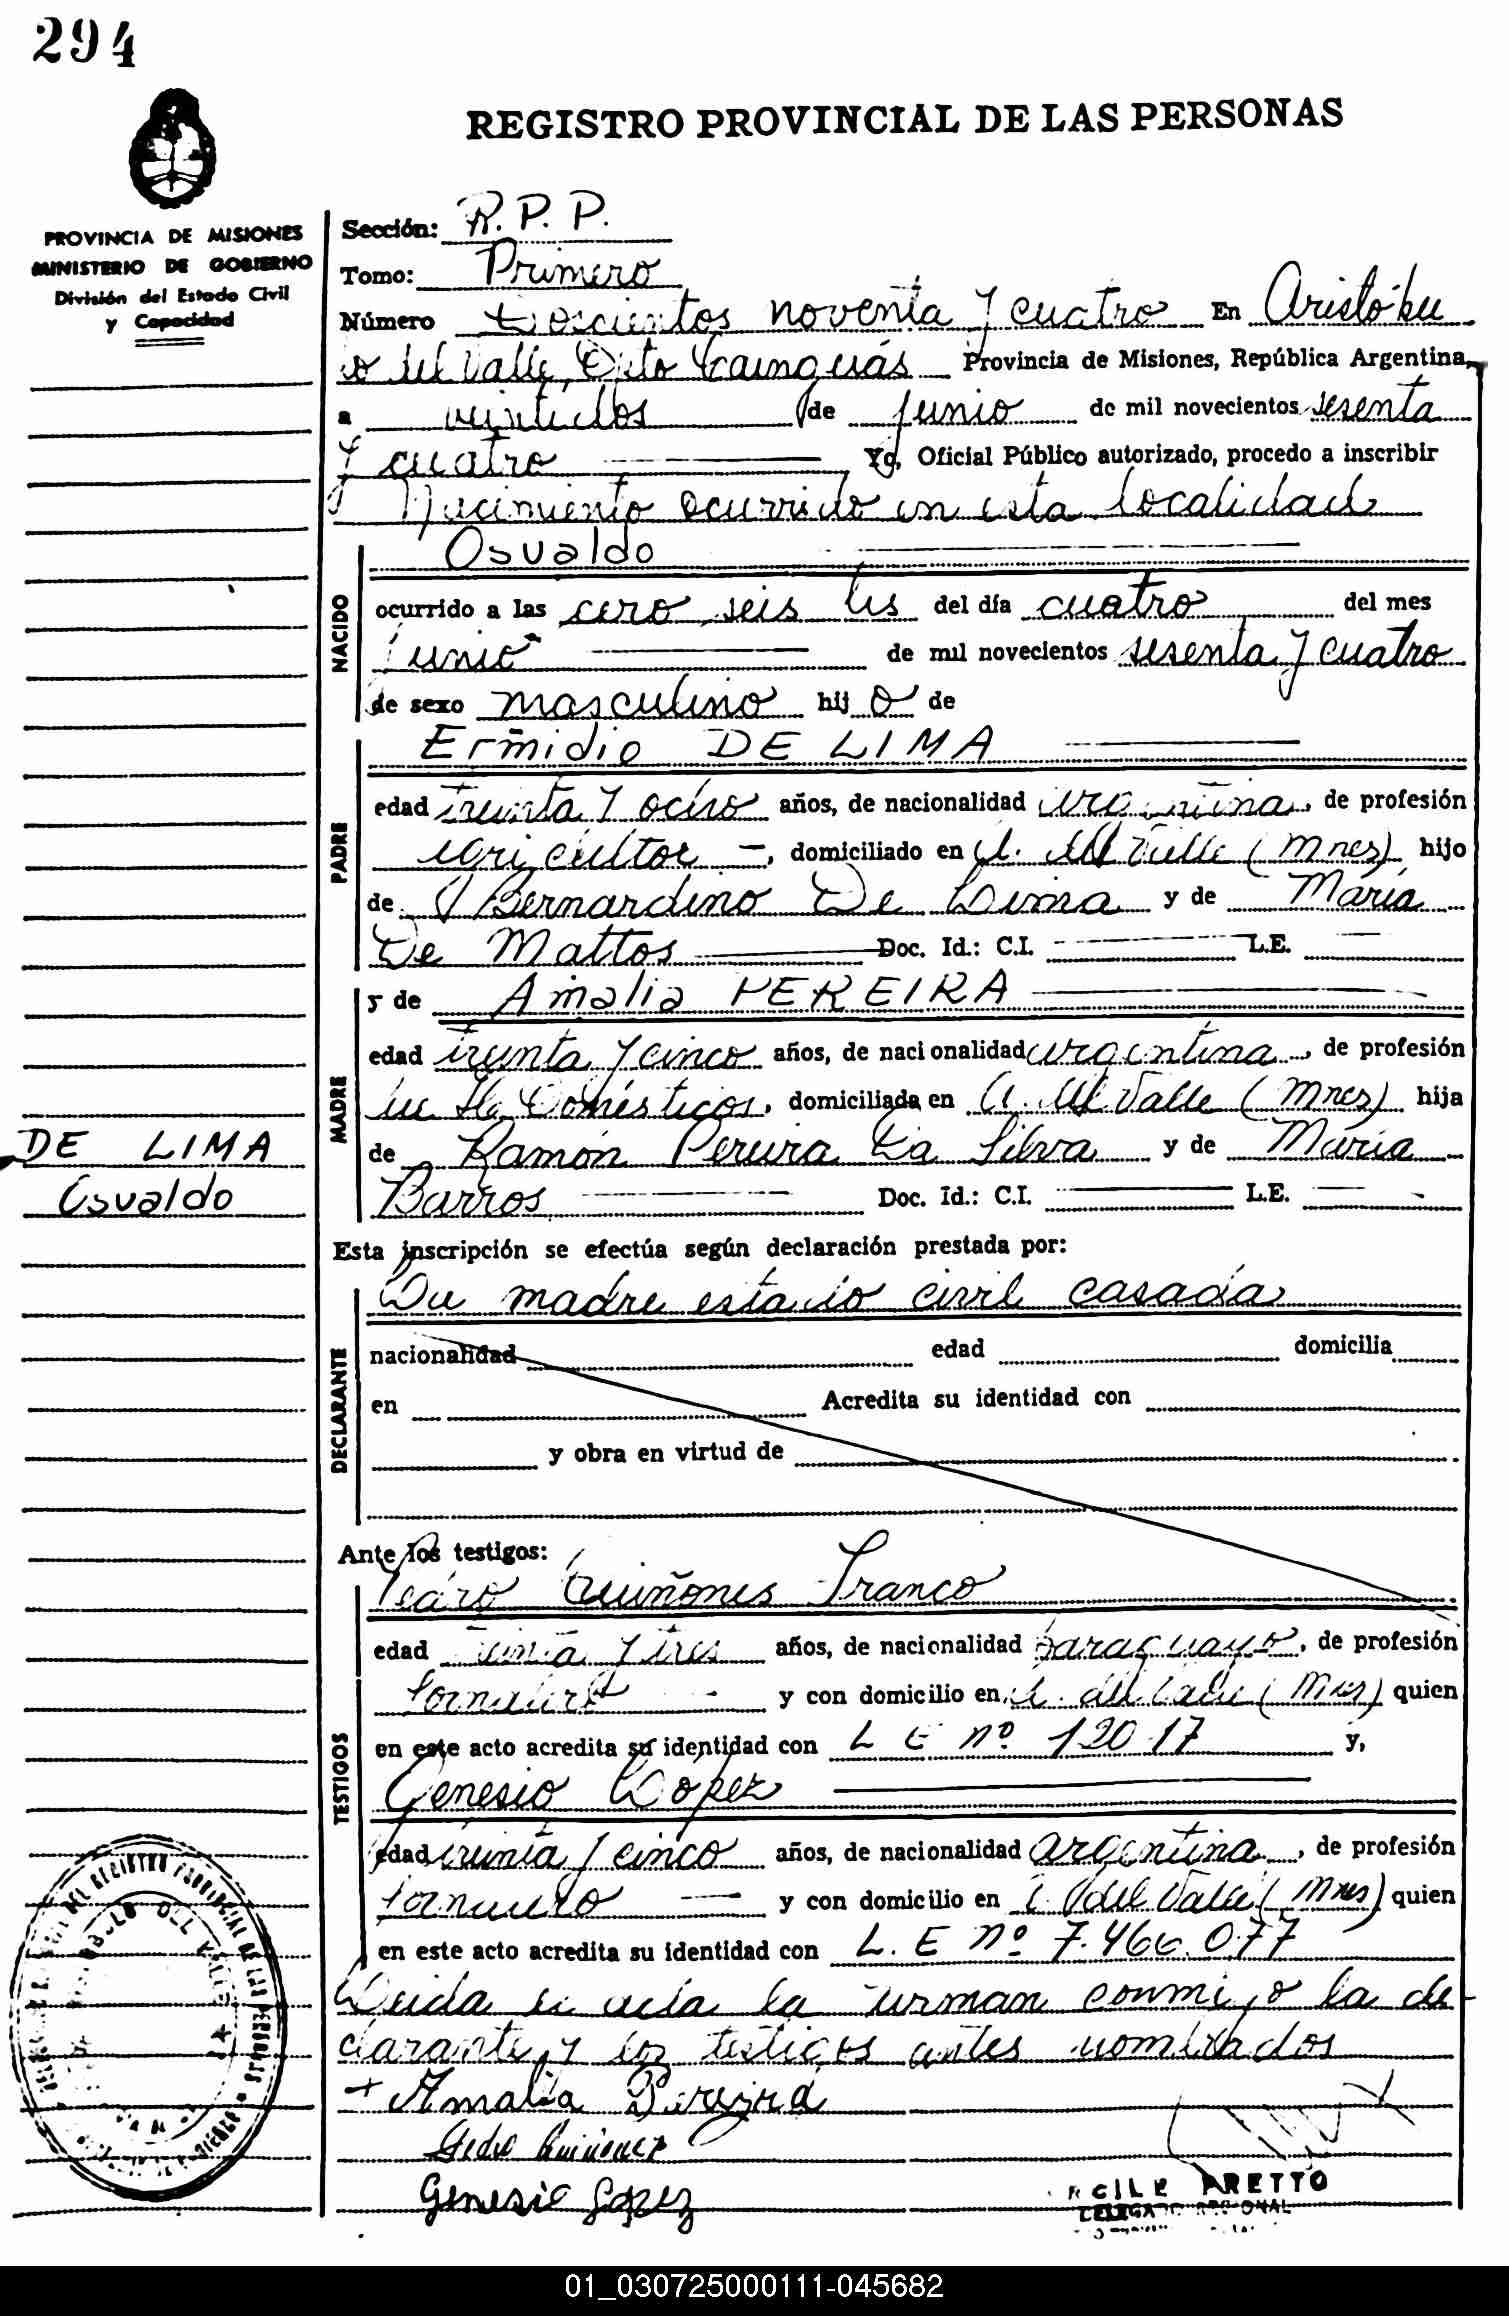 294
REGISTRO PROVINCIAL DE LAS PERSONAS
PROVINCIA DE MISIONES
MINISTERIO DE GOBIERNO
División del Estado Civil
y Capacidad
Sección: R. P. P.
Tomo: Primero
Número Doscientos noventa y cuatro En Aristóbu
lo del Valle, Dpto Cainguás Provincia de Misiones, República Argentina,
a veintidos de Junio de mil novecientos sesenta
y cuatro Yo, Oficial Público autorizado, procedo a inscribir
Nacimiento ocurrido en esta localidad
NACIDO
Osvaldo
ocurrido a las cero seis hs del día cuatro del mes
Junio de mil novecientos sesenta y cuatro
de sexo masculino hij o de
PADRE
Ermidio DE LIMA
edad treinta y ocho años, de nacionalidad argentina, de profesión
agricultor, domiciliado en A. del Valle (Mnes) hijo
de Bernardino De Lima y de María
De Mattos Doc. Id.: C.I. L.E.
MADRE
y de Amalia PEREIRA
edad treinta y cinco años, de nacionalidad argentina, de profesión
Domésticos, domiciliada en A. del Valle (Mnes) hija
de Ramón Pereira Da Silva y de María
Barros Doc. Id.: C.I. L.E.
DE LIMA
Osvaldo
Esta inscripción se efectúa según declaración prestada por:
DECLARANTE
Su madre estado civil casada
nacionalidad edad domicilia
en Acredita su identidad con
y obra en virtud de
Ante los testigos:
TESTIGOS
Pedro Quiñones Franco
edad treinta y tres años, de nacionalidad paraguayo, de profesión
y con domicilio en A. del Valle (Mnes) quien
en este acto acredita su identidad con L E nº 12017 y,
Genesio López
edad treinta y cinco años, de nacionalidad argentina, de profesión
y con domicilio en A. del Valle (Mnes) quien
en este acto acredita su identidad con L. E nº 7.466.077
Leida el acta la firman conmigo la de
clarante y los testigos antes nombrados
Amalia Pereira
Pedro Quiñonez
Genesio Lopez
ARETTO
DELEGADO REGIONAL
01_030725000111-045682